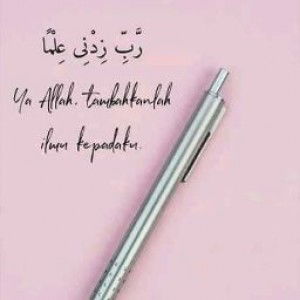 رَّبِّ زِدْنِى عِلْمًا
Ya Allah, tambahkanlah
ilmu kepadaku.